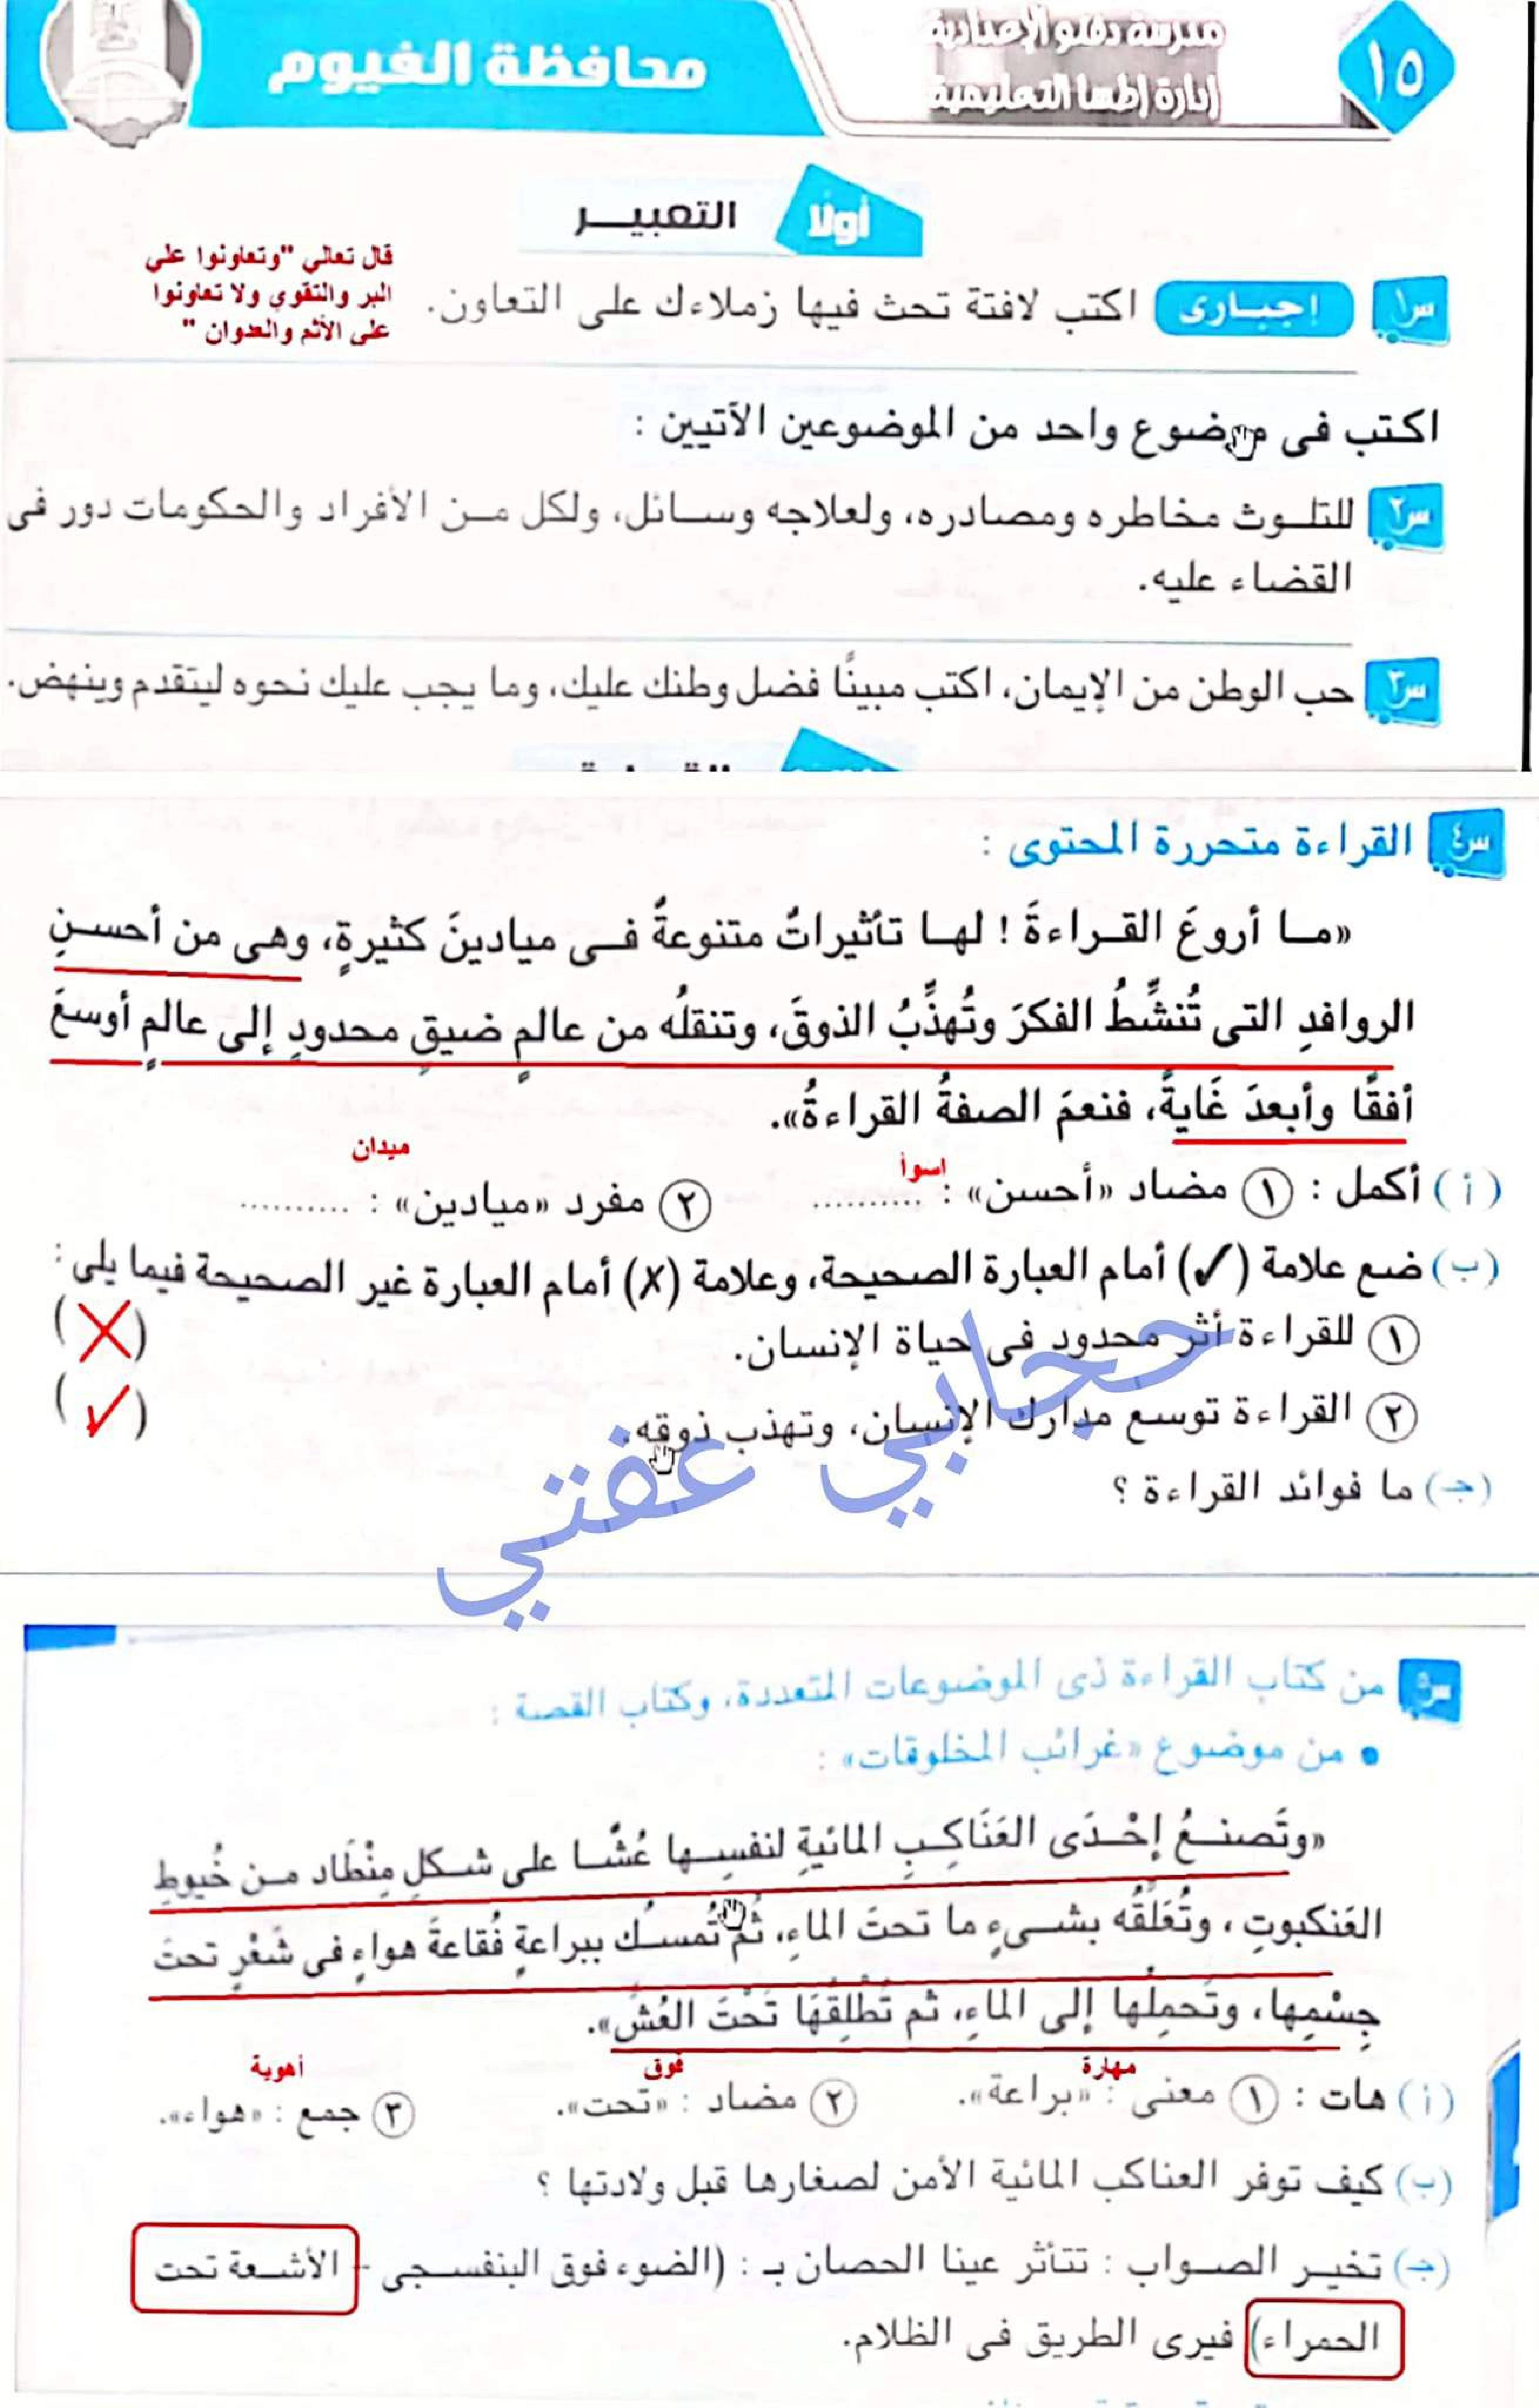 ١٥
مدرسة دفنو الإعدادية
إدارة إطسا التعليمية
محافظة الفيوم
أولًا
التعبيـــر
س١ إجبــارى اكتب لافتة تحث فيها زملاءك على التعاون.
قال تعالي "وتعاونوا علي
البر والتقوي ولا تعاونوا
على الأثم والعدوان "
اكتب فى موضوع واحد من الموضوعين الآتيين :
س٢ للتلــوث مخاطره ومصادره، ولعلاجه وســائل، ولكل مــن الأفراد والحكومات دور فى
القضاء عليه.
س٣ حب الوطن من الإيمان، اكتب مبينًا فضل وطنك عليك، وما يجب عليك نحوه ليتقدم وينهض.
س٤ القراءة متحررة المحتوى :
«مــا أروعَ القــراءةَ ! لهــا تأثيراتٌ متنوعةٌ فــى ميادينَ كثيرةٍ، وهى من أحســنِ
الروافدِ التى تُنشِّطُ الفكرَ وتُهذِّبُ الذوقَ، وتنقلُه من عالمٍ ضيقٍ محدودٍ إلى عالمٍ أوسعَ
أفقًا وأبعدَ غَايةً، فنعمَ الصفةُ القراءةُ».
ميدان
اسوأ
(أ) أكمل : ١ مضاد «أحسن» : .......... ٢ مفرد «ميادين» : ..........
(ب) ضع علامة (✓) أمام العبارة الصحيحة، وعلامة (✗) أمام العبارة غير الصحيحة فيما يلى :
١ للقراءة أثر محدود فى حياة الإنسان. (✗)
٢ القراءة توسع مدارك الإنسان، وتهذب ذوقه. (✓)
(جـ) ما فوائد القراءة ؟
حجابي عفتي
س٥ من كتاب القراءة ذى الموضوعات المتعددة، وكتاب القصة :
• من موضوع «غرائب المخلوقات» :
«وتَصنــعُ إحْــدَى العَنَاكِــبِ المائيةِ لنفسِــها عُشًّــا على شــكلِ مِنْطَاد مــن خُيوطِ
العَنكبوتِ ، وتُعَلِّقُه بشــىءٍ ما تحتَ الماءِ، ثُمَّ تُمسـكُ ببراعةٍ فُقاعةَ هواءٍ فى شَعْرٍ تحتَ
جِسْمِها، وتَحمِلُها إلى الماءِ، ثم تُطْلِقُهَا تَحْتَ العُشِّ».
مهارة
فوق
أهوية
(أ) هات : ١ معنى : «براعة». ٢ مضاد : «تحت». ٣ جمع : «هواء».
(ب) كيف توفر العناكب المائية الأمن لصغارها قبل ولادتها ؟
(جـ) تخيــر الصــواب : تتأثر عينا الحصان بـ : (الضوء فوق البنفســجى - الأشــعة تحت
الحمراء) فيرى الطريق فى الظلام.